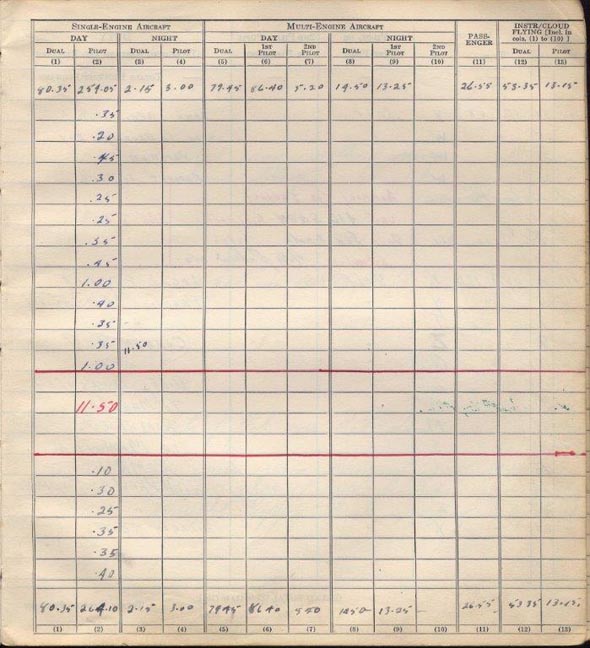 SINGLE-ENGINE AIRCRAFT MULTI-ENGINE AIRCRAFT PASS-ENGER INSTR/CLOUD FLYING (Incl. in cols. (1) to (10) )
DAY NIGHT DAY NIGHT
DUAL PILOT DUAL PILOT DUAL 1ST PILOT 2ND PILOT DUAL 1ST PILOT 2ND PILOT DUAL PILOT
(1) (2) (3) (4) (5) (6) (7) (8) (9) (10) (11) (12) (13)
80.35 259.05 2.15 3.00 79.45 86.40 5.20 14.50 13.25 26.55 53.35 13.15
.35
.20
.45
.30
.25
.25
.35
.45
1.00
.40
.35
.35 11.50
1.00
11.50
.10
.30
.25
.35
.35
.40
80.35 264.10 2.15 3.00 79.45 86.40 13.25 26.55 53.35 13.15
(1) (2) (3) (4) (5) (6) (7) (8) (9) (10) (11) (12) (13)